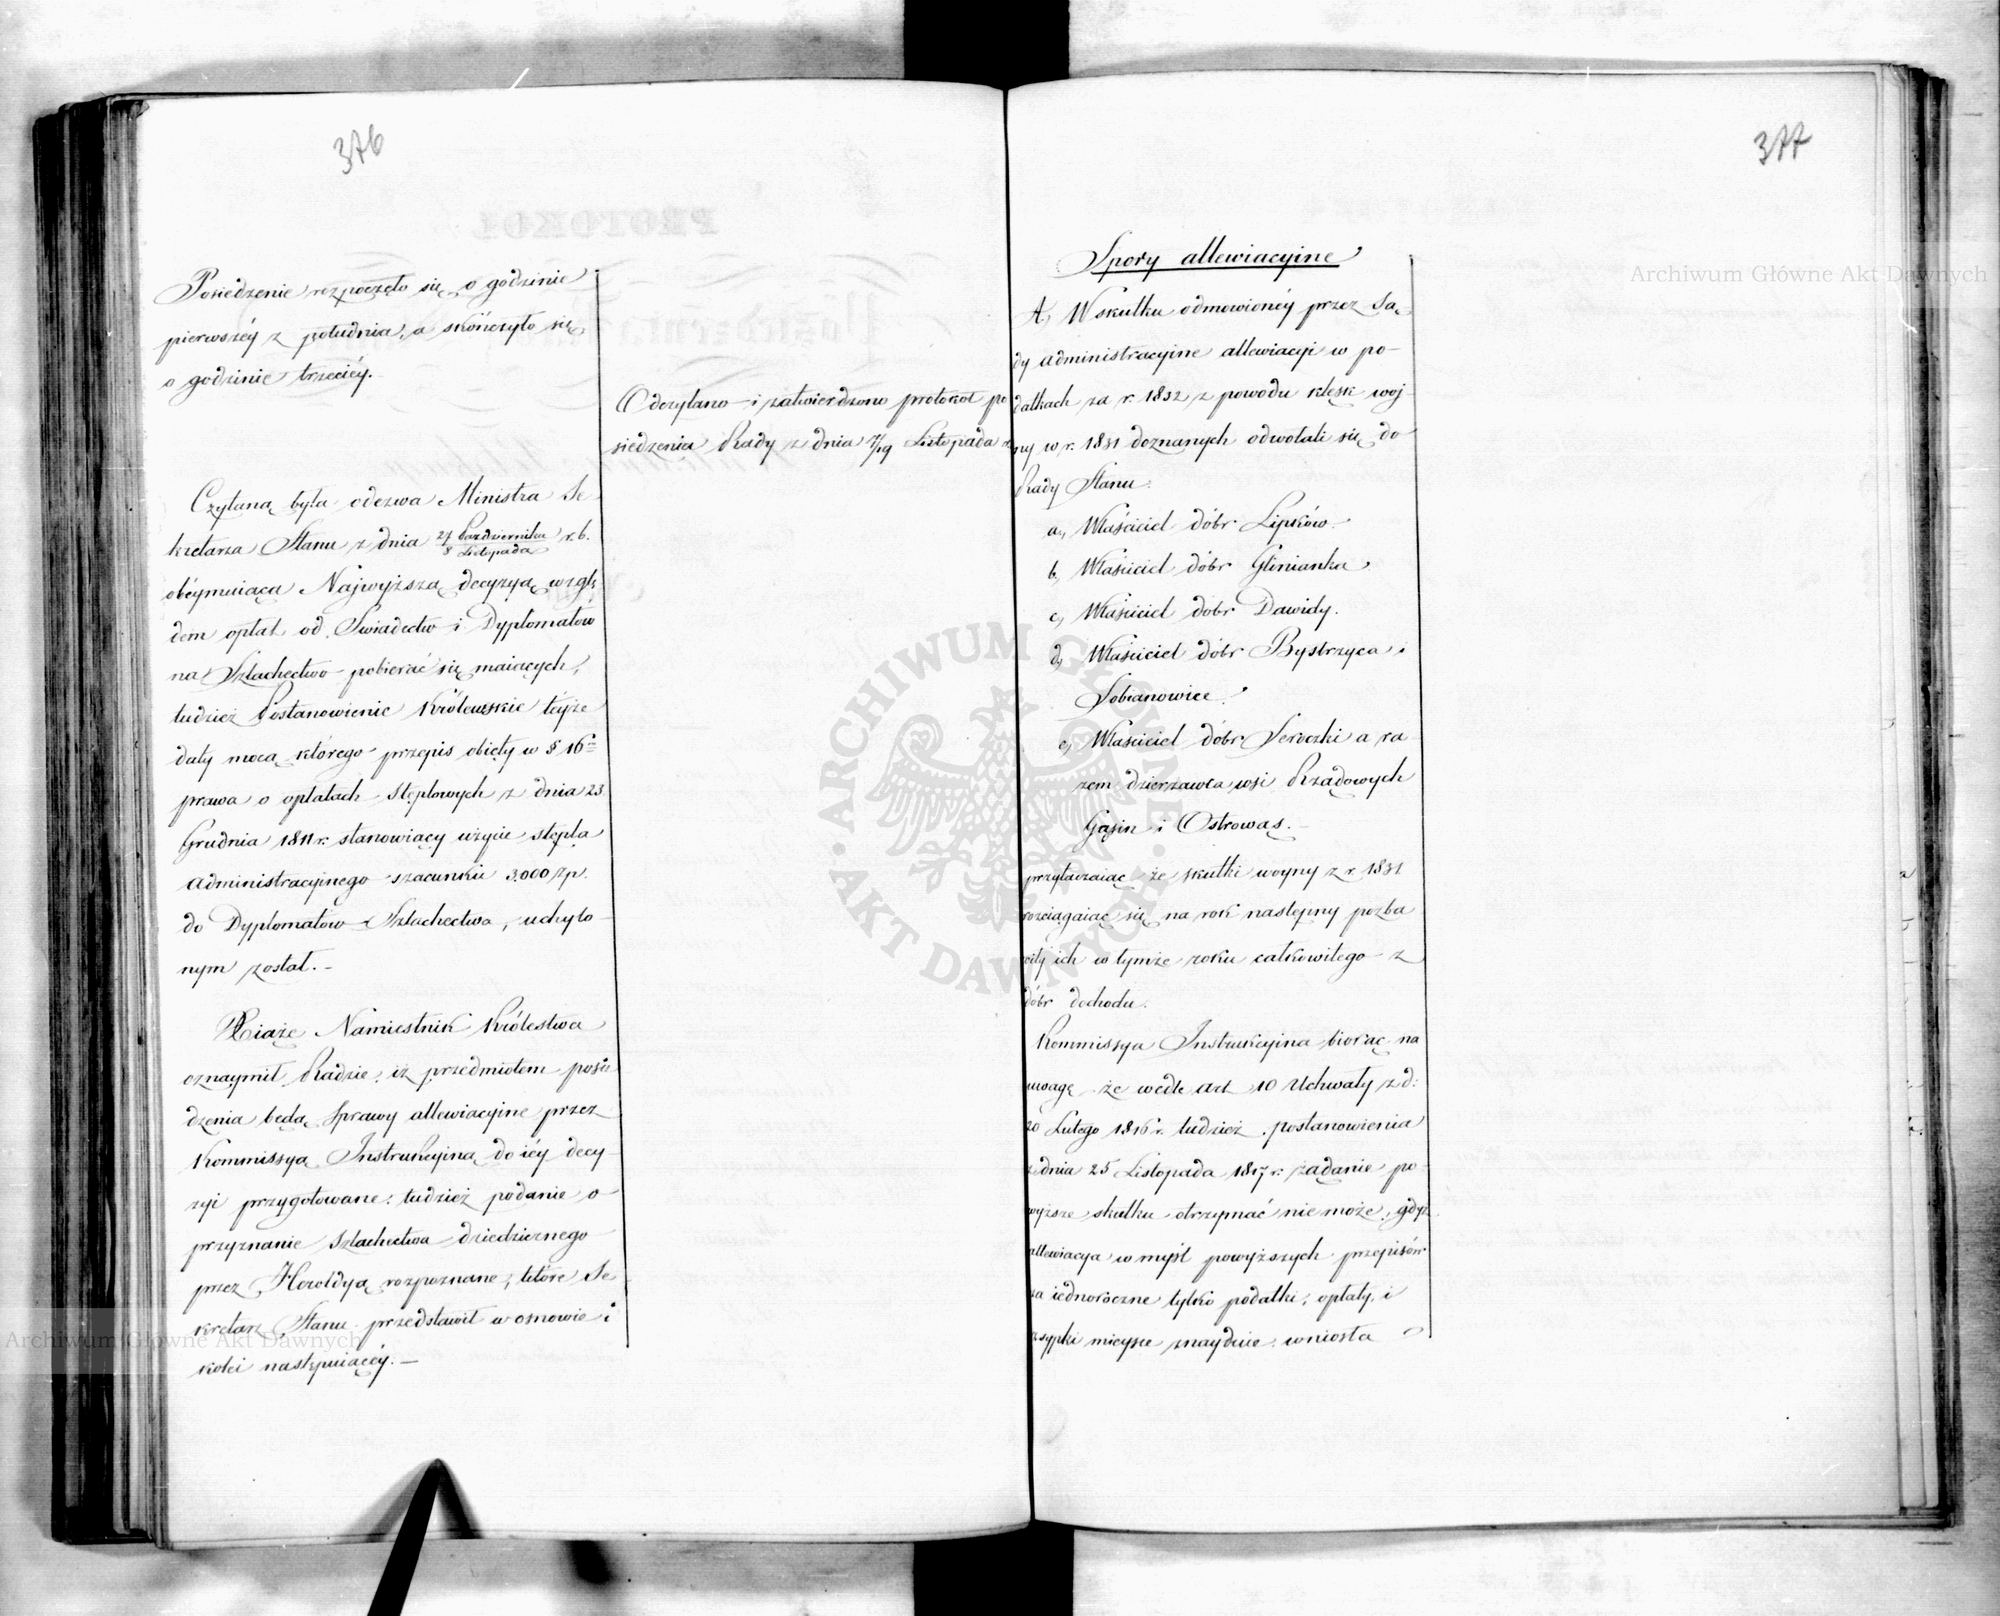 376
Posiedzenie rozpoczęło się o godzinie
pierwszéy z południa, a skończyło się
o godzinie trzeciéy.
Odczytano i zatwierdzono protokół po
siedzenia Rady z dnia 7/19 Listopada
Czytaną była odezwa Ministra Se
kretarza Stanu z dnia 27 Października / 8 Listopada r. b.
obéymuiąca Najwyższą decyzyą wzglę
dem opłat od Swiadectw i Dyplomatów
na Szlachectwo pobierać się maiących,
tudzież Postanowienie Królewskie téyże
daty mocą którego przepis obięty w § 16
prawa o opłatach stęplowych z dnia 23
Grudnia 1811 r. stanowiący użycie stępla
administracyjnego szacunku 3.000 zp.
do Dyplomatów Szlachectwa, uchylo
nym został.
Xiąże Namiestnik Królestwa
oznaymił Radzie, iż przedmiotem posie
dzenia będą Sprawy allewiacyine przez
Kommissyą Instrukcyiną do iéy decy
zyi przygotowane, tudzież podanie o
przyznanie szlachectwa dziedzicznego
przez Heroldyą rozpoznane, które Se
kretarz Stanu przedstawił w osnowie i
kolei następuiącéy.
377
Spory allewiacyine
A, W skutku odmowionéy przez Są
dy administracyine allewiacyi w po-
datkach za r. 1832 z powodu klęsk woj-
ny w r. 1831 doznanych odwołali się do
Rady Stanu:
a, Właściciel dóbr Lipków
b, Właściciel dóbr Glinianka
c, Właściciel dóbr Dawidy.
d, Właściciel dóbr Bystrzyca i
Sobianowice
e, Właściciel dóbr Seroczki a ra
zem dzierżawca wsi Rządowych
Gąsin i Ostrowąs.
przytaczaiąc że skutki woyny z r. 1831
rozciągaiąc się na rok następny pozba
wiły ich w tymże roku całkowitego z
dóbr dochodu.
Kommissya Instrukcyina biorąc na
uwagę że wedle art 10 Uchwały z d:
20 Lutego 1816 r. tudzież postanowienia
z dnia 25 Listopada 1817 r. żądanie po-
wyższe skutku otrzymać nie może, gdyż
allewiacya w myśl powyższych przepisów
za iednoroczne tylko podatki, opłaty, i
zsypki mieysce znayduie, wniosła
Archiwum Główne Akt Dawnych
Archiwum Główne Akt Dawnych
ARCHIWUM GŁÓWNE AKT DAWNYCH